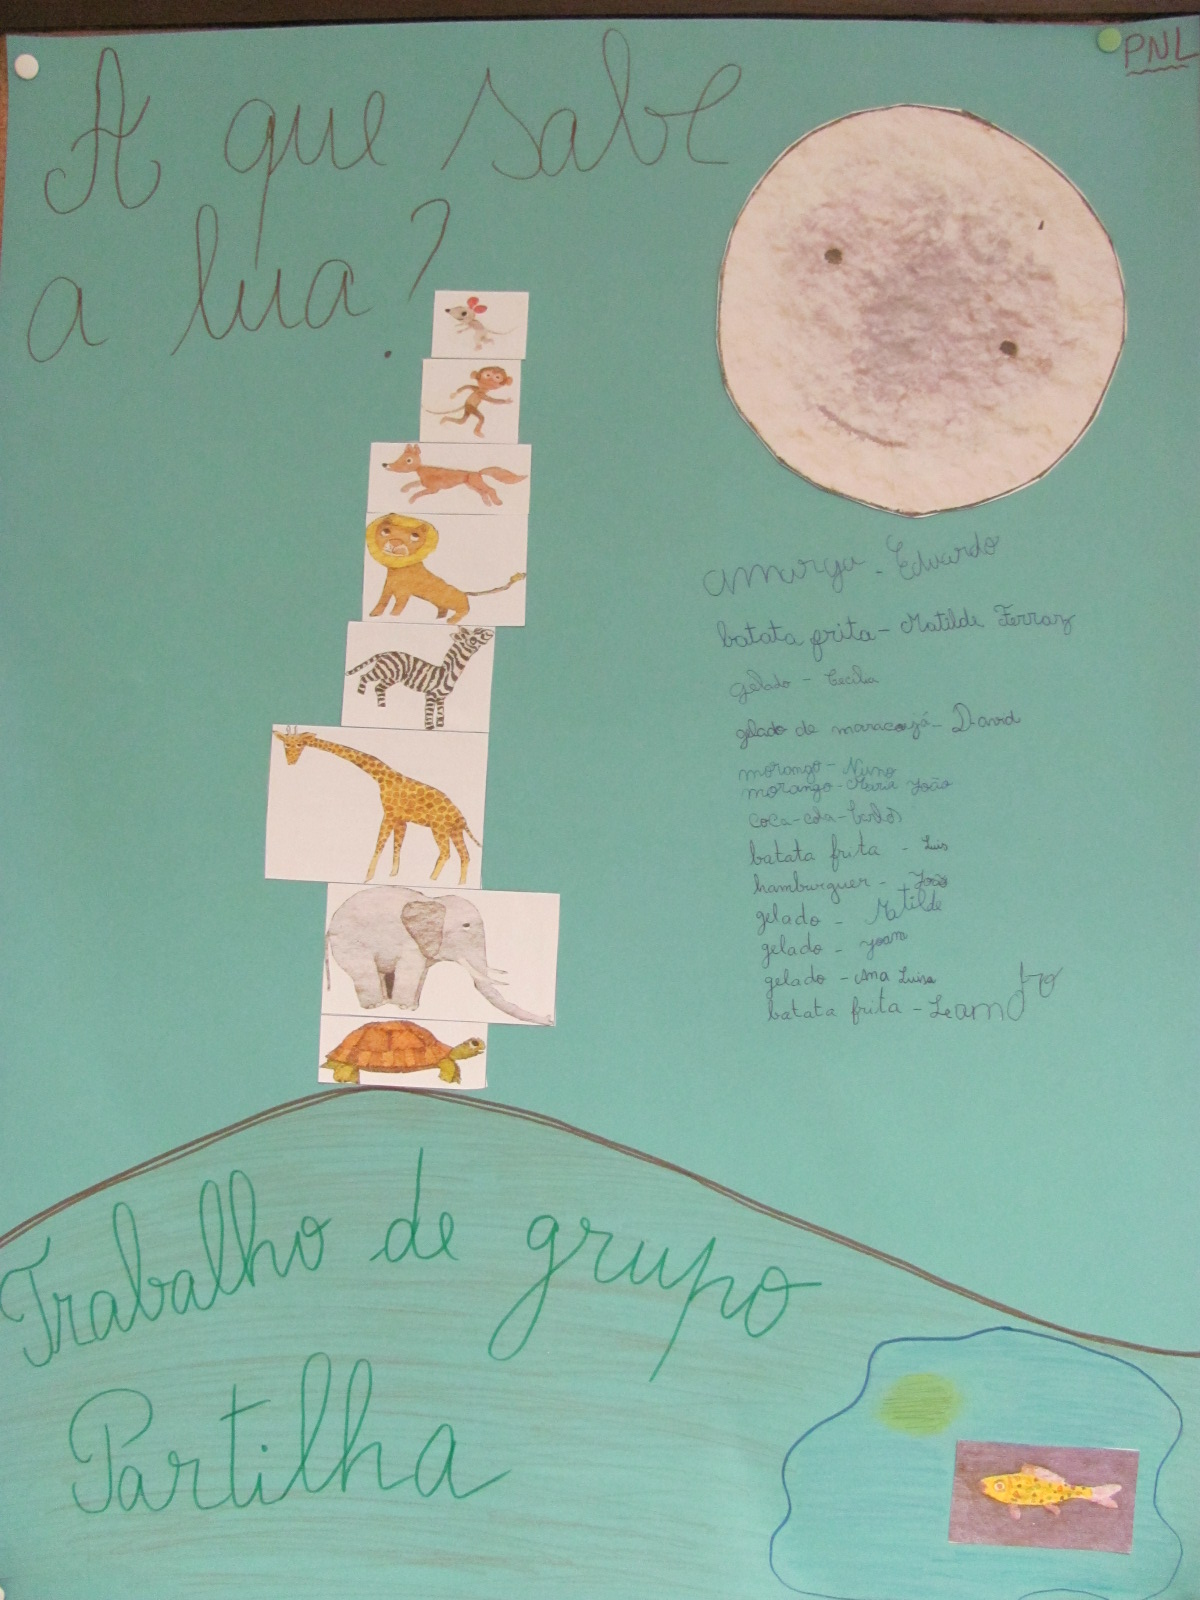 PNL
A que sabe
a lua?
amarga - Eduardo
batata frita - Matilde Ferraz
gelado - Cecília
gelado de maracujá - David
morango - Nuno
morango - Maria João
coca-cola - Carlos
batata frita - Luís
hamburguer - João
gelado - Matilde
gelado - Joana
gelado - Ana Luísa
batata frita - Leandro
Trabalho de grupo
Partilha